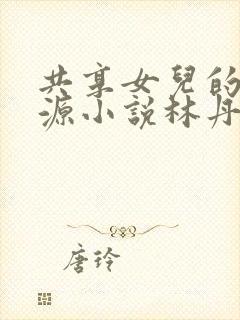 共享女兒的
源小說林丹
唐玲